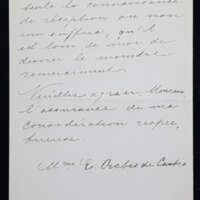 seule la connaissance
de réception ou non
me suffira, qu'il
est loin de moi de
désirer le moindre
remerciement.
Veuillez agréer, Monsieur
l'assurance de ma
considération respec-
tueuse.
Mme